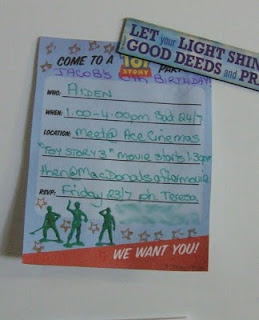 LET your LIGHT SHIN
GOOD DEEDS and PR
COME TO A TOY STORY PARTY
JACOB'S 6TH BIRTHDAY
WHO: AIDEN
WHEN: 1.00-4.00pm Sat 24/7
LOCATION: Meet @ Ace Cinemas
"TOY STORY 3" movie starts 1.30pm
then @ MacDonalds after movie
RSVP: Friday 23/7 ph Teresa
WE WANT YOU!